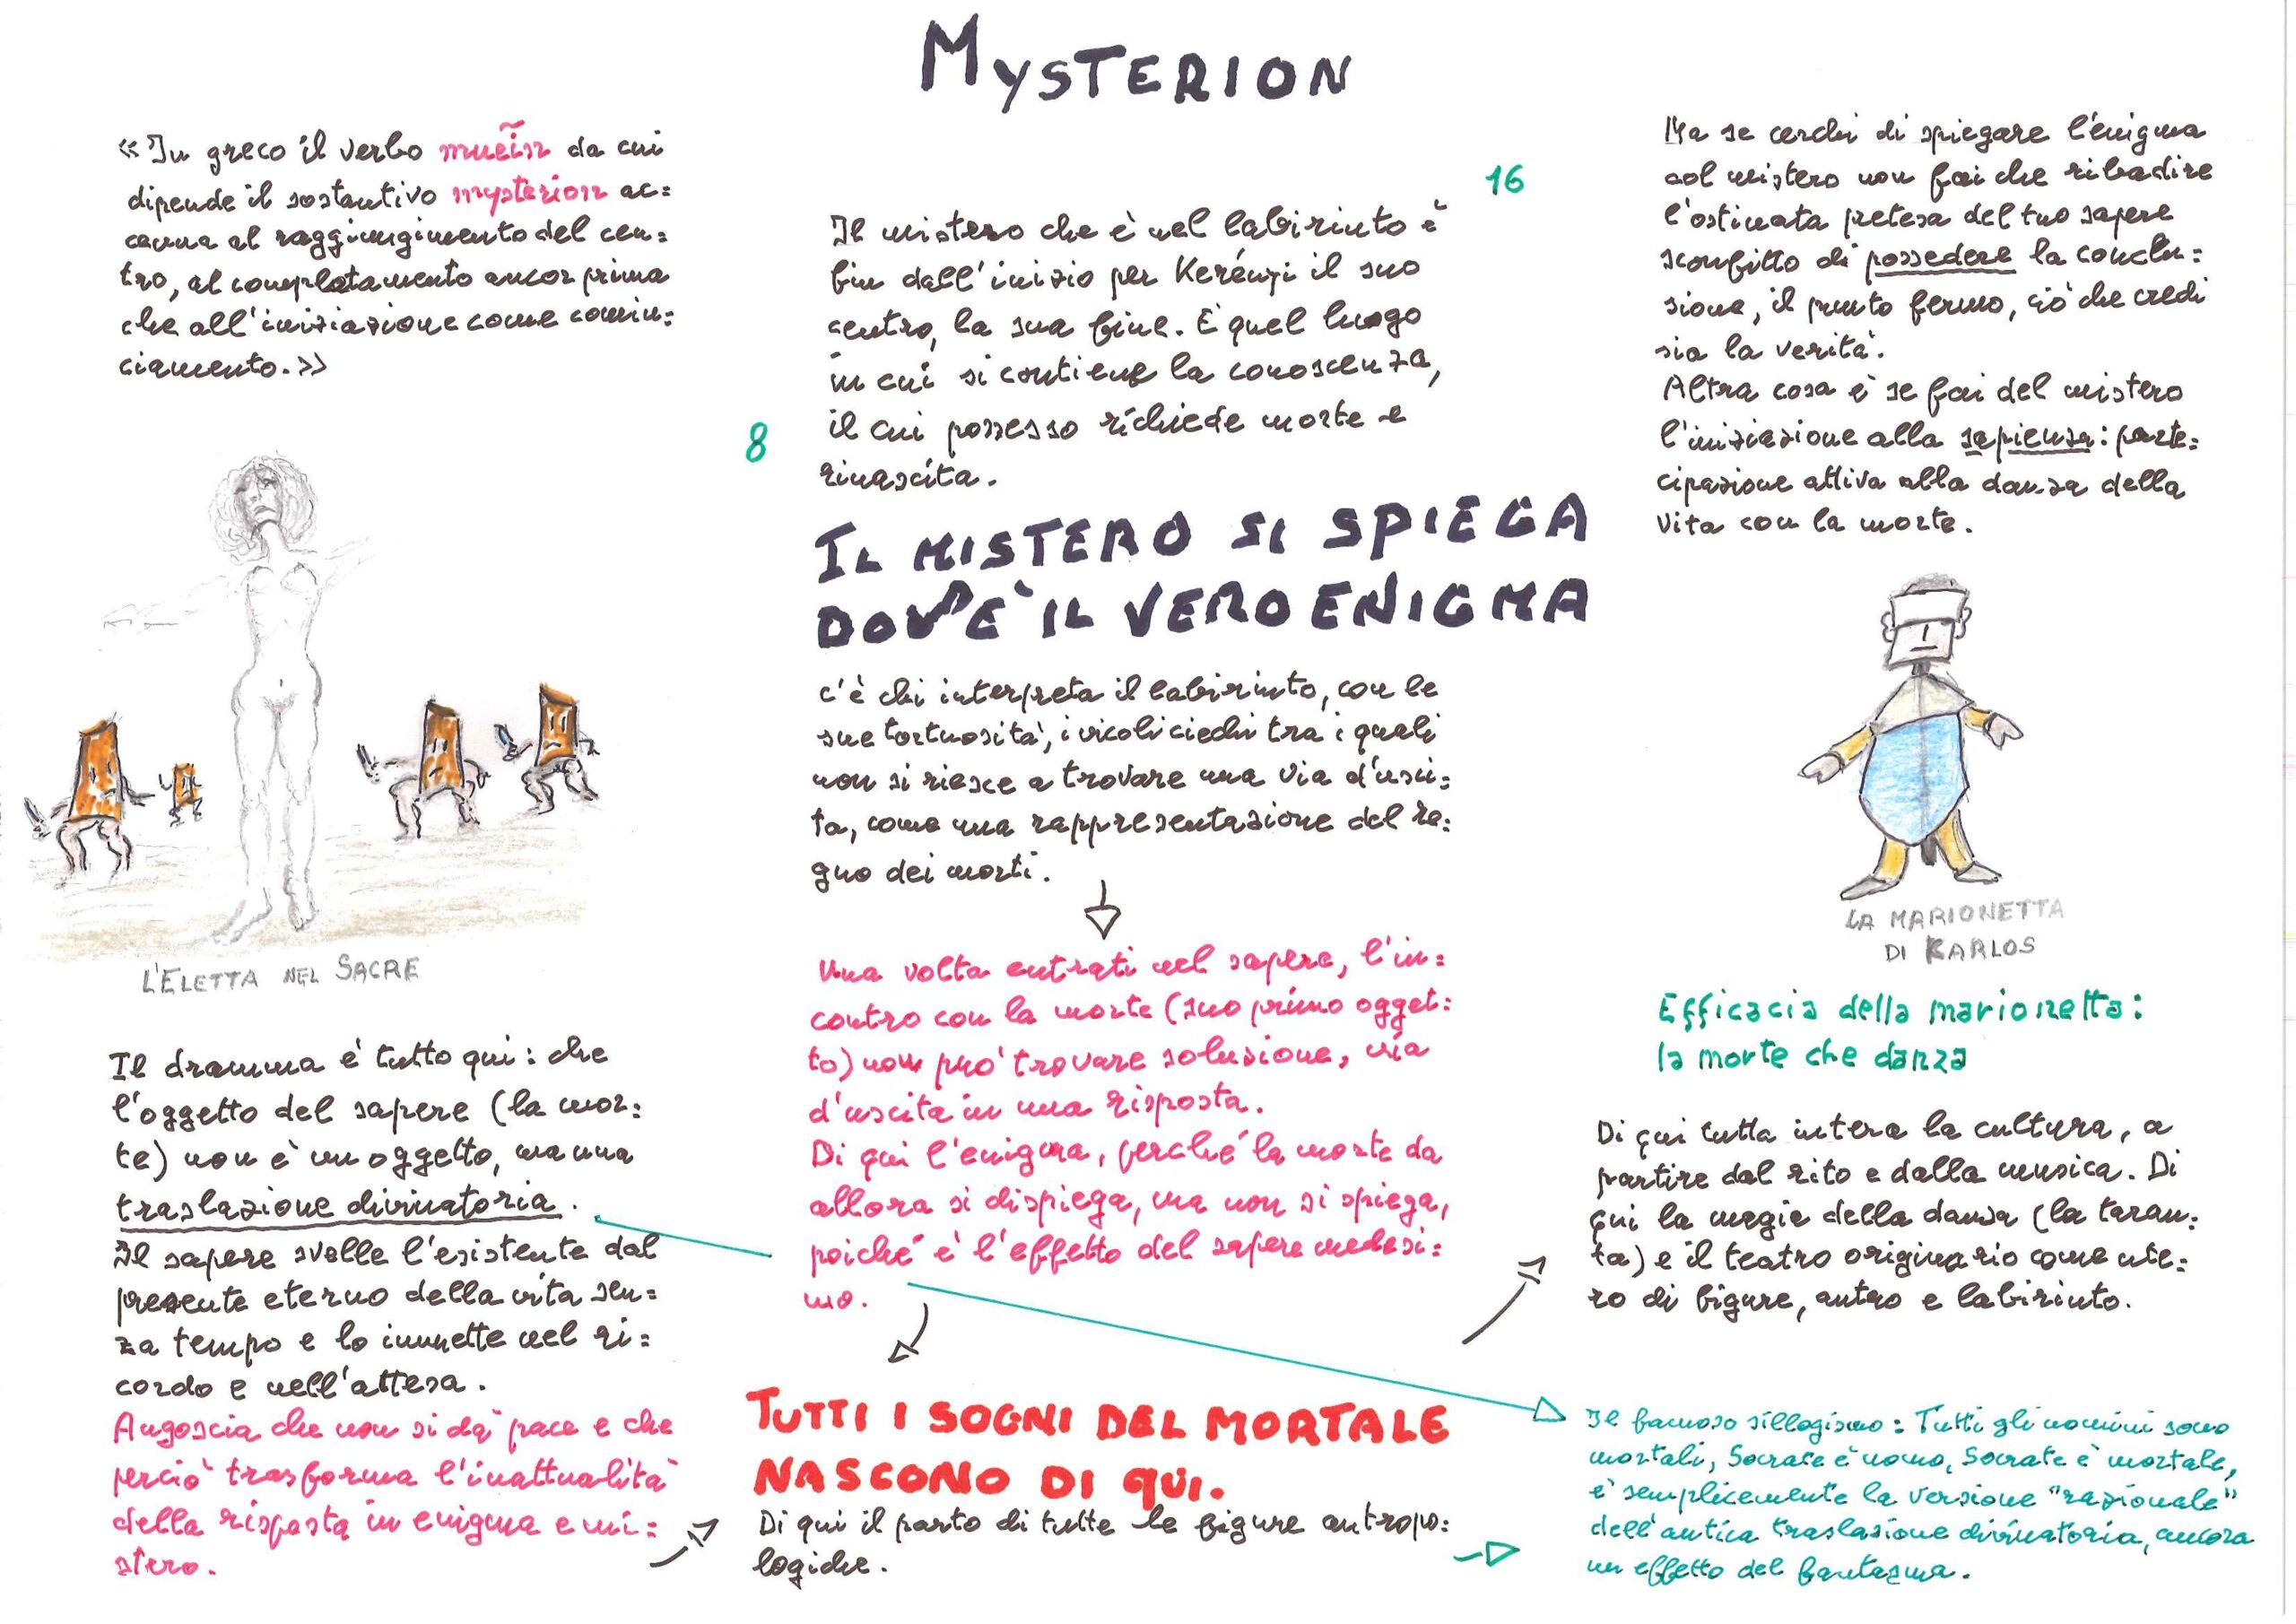 Mysterion
« In greco il verbo mueĩn da cui
dipende il sostantivo mysterion ac=
cenna al raggiungimento del cen=
tro, al completamento ancor prima
che all'iniziazione come comin=
ciamento. »
L'Eletta nel Sacre
Il dramma è tutto qui: che
l'oggetto del sapere (la mor=
te) non è un oggetto, ma una
traslazione divinatoria.
Il sapere svelle l'esistente dal
presente eterno della vita sen=
za tempo e lo immette nel ri=
cordo e nell'attesa.
Angoscia che non si dà pace e che
perciò trasforma l'inattualità
della risposta in enigma e mi=
stero.
8
16
Il mistero che è nel labirinto è
fin dall'inizio per Kerényi il suo
centro, la sua fine. È quel luogo
in cui si contiene la conoscenza,
il cui possesso richiede morte e
rinascita.
IL MISTERO SI SPIEGA
DOV'È IL VERO ENIGMA
c'è chi interpreta il labirinto, con le
sue tortuosità, i vicoli ciechi tra i quali
non si riesce a trovare una via d'usci=
ta, come una rappresentazione del re=
gno dei morti.
Una volta entrati nel sapere, l'in=
contro con la morte (suo primo ogget=
to) non può trovare soluzione, via
d'uscita in una risposta.
Di qui l'enigma, perché la morte da
allora si dispiega, ma non si spiega,
poiché è l'effetto del sapere medesi=
mo.
TUTTI I SOGNI DEL MORTALE
NASCONO DI QUI.
Di qui il parto di tutte le figure antropo=
logiche.
Ma se cerchi di spiegare l'enigma
col mistero non fai che ribadire
l'ostinata pretesa del tuo sapere
sconfitto di possedere la conclu=
sione, il punto fermo, ciò che credi
sia la verità.
Altra cosa è se fai del mistero
l'iniziazione alla sapienza: parte=
cipazione attiva alla danza della
vita con la morte.
LA MARIONETTA
DI KARLOS
Efficacia della marionetta:
la morte che danza
Di qui tutta intera la cultura, a
partire dal rito e dalla musica. Di
qui la magia della danza (la taran=
ta) e il teatro originario come ute=
ro di figure, antro e labirinto.
Il famoso sillogismo: Tutti gli uomini sono
mortali, Socrate è uomo, Socrate è mortale,
è semplicemente la versione "razionale"
dell'antica traslazione divinatoria, ancora
un effetto del fantasma.